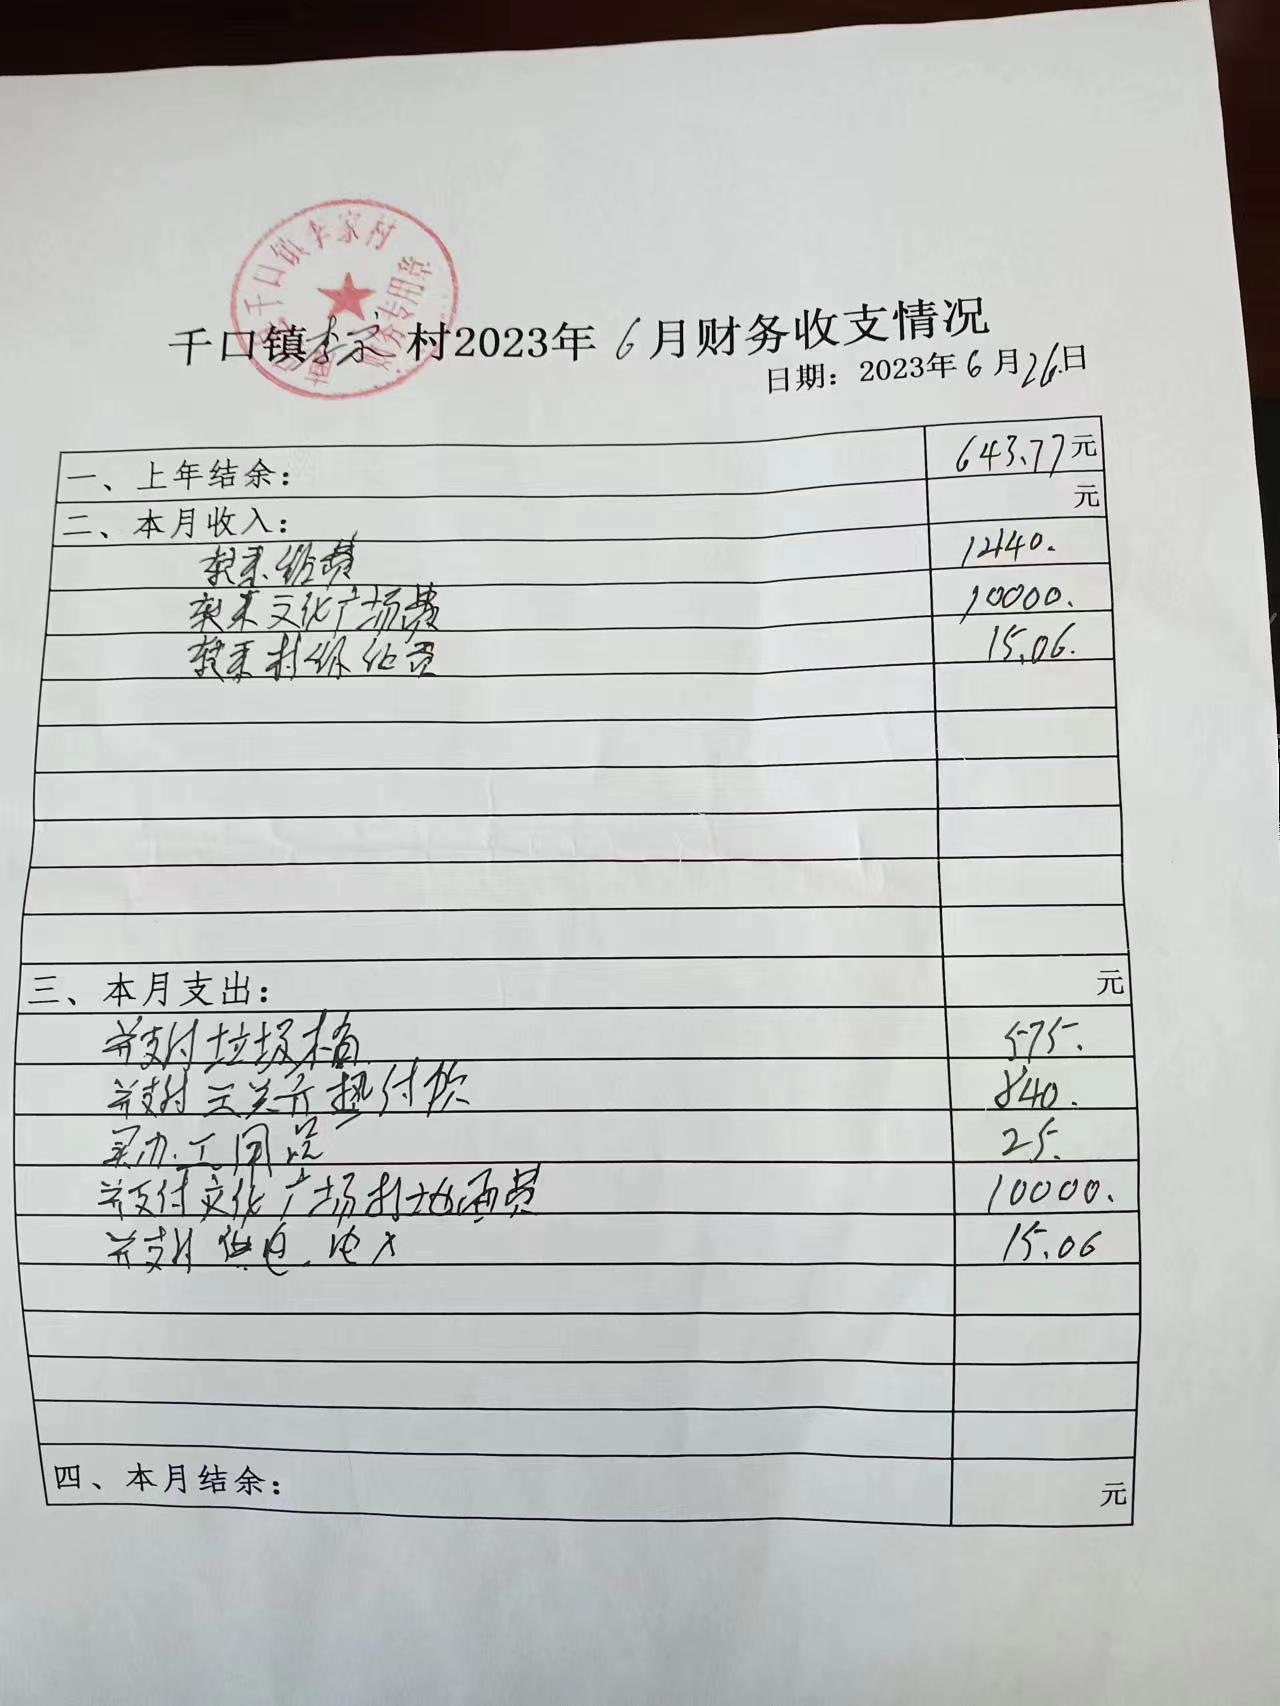 千口镇李家村
财务专用章
千口镇李家村2023年6月财务收支情况
日期：2023年6月26日
一、上年结余： 643.77元
二、本月收入： 元
拨来经费 1440.
拨来文化广场费 10000.
拨来村级 15.06.
三、本月支出： 元
并支付垃圾桶 575.
并支付 付款 840.
买办公用品 25.
并支付文化广场打地面费 10000.
并支付供电.电费 15.06
四、本月结余： 元